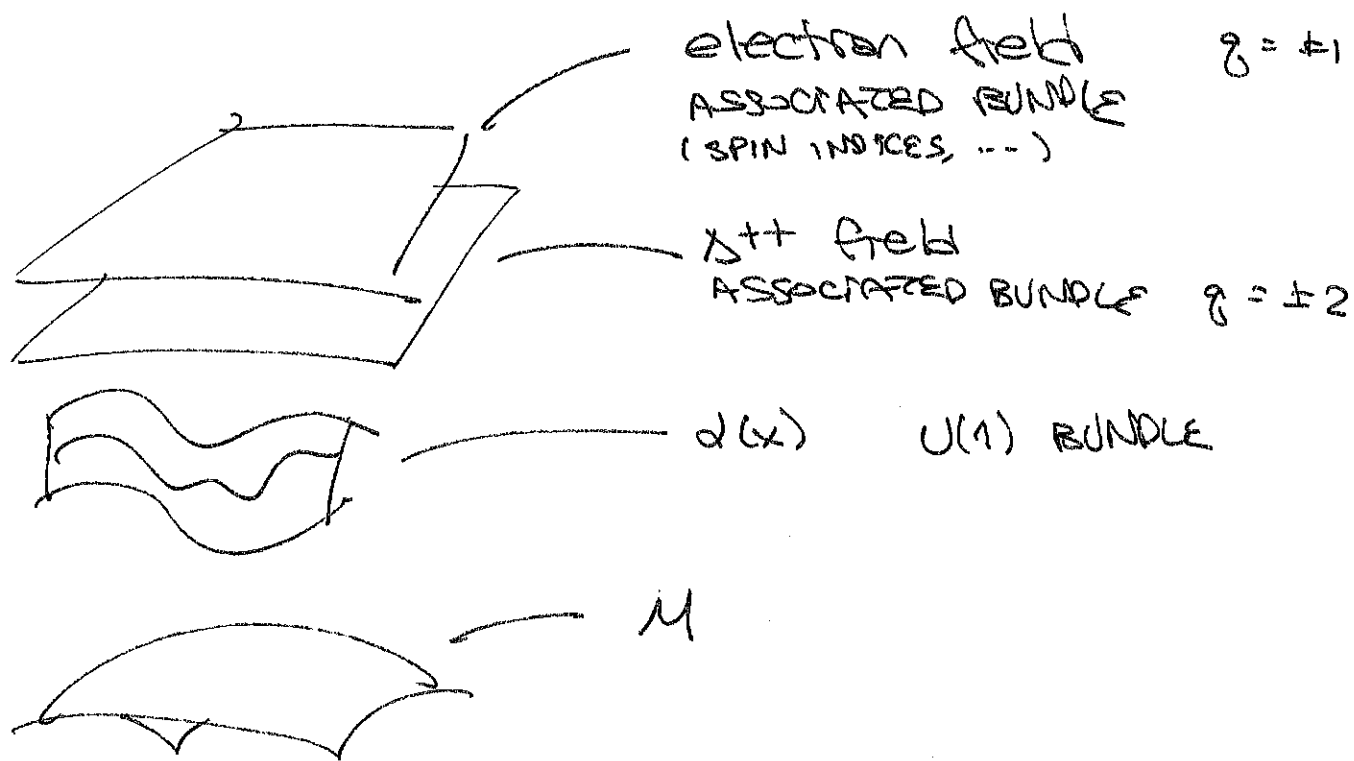 electron field q = ±1
ASSOCIATED BUNDLE
(SPIN INDICES, ...)
Δ++ field
ASSOCIATED BUNDLE q = ±2
α(x) U(1) BUNDLE
M